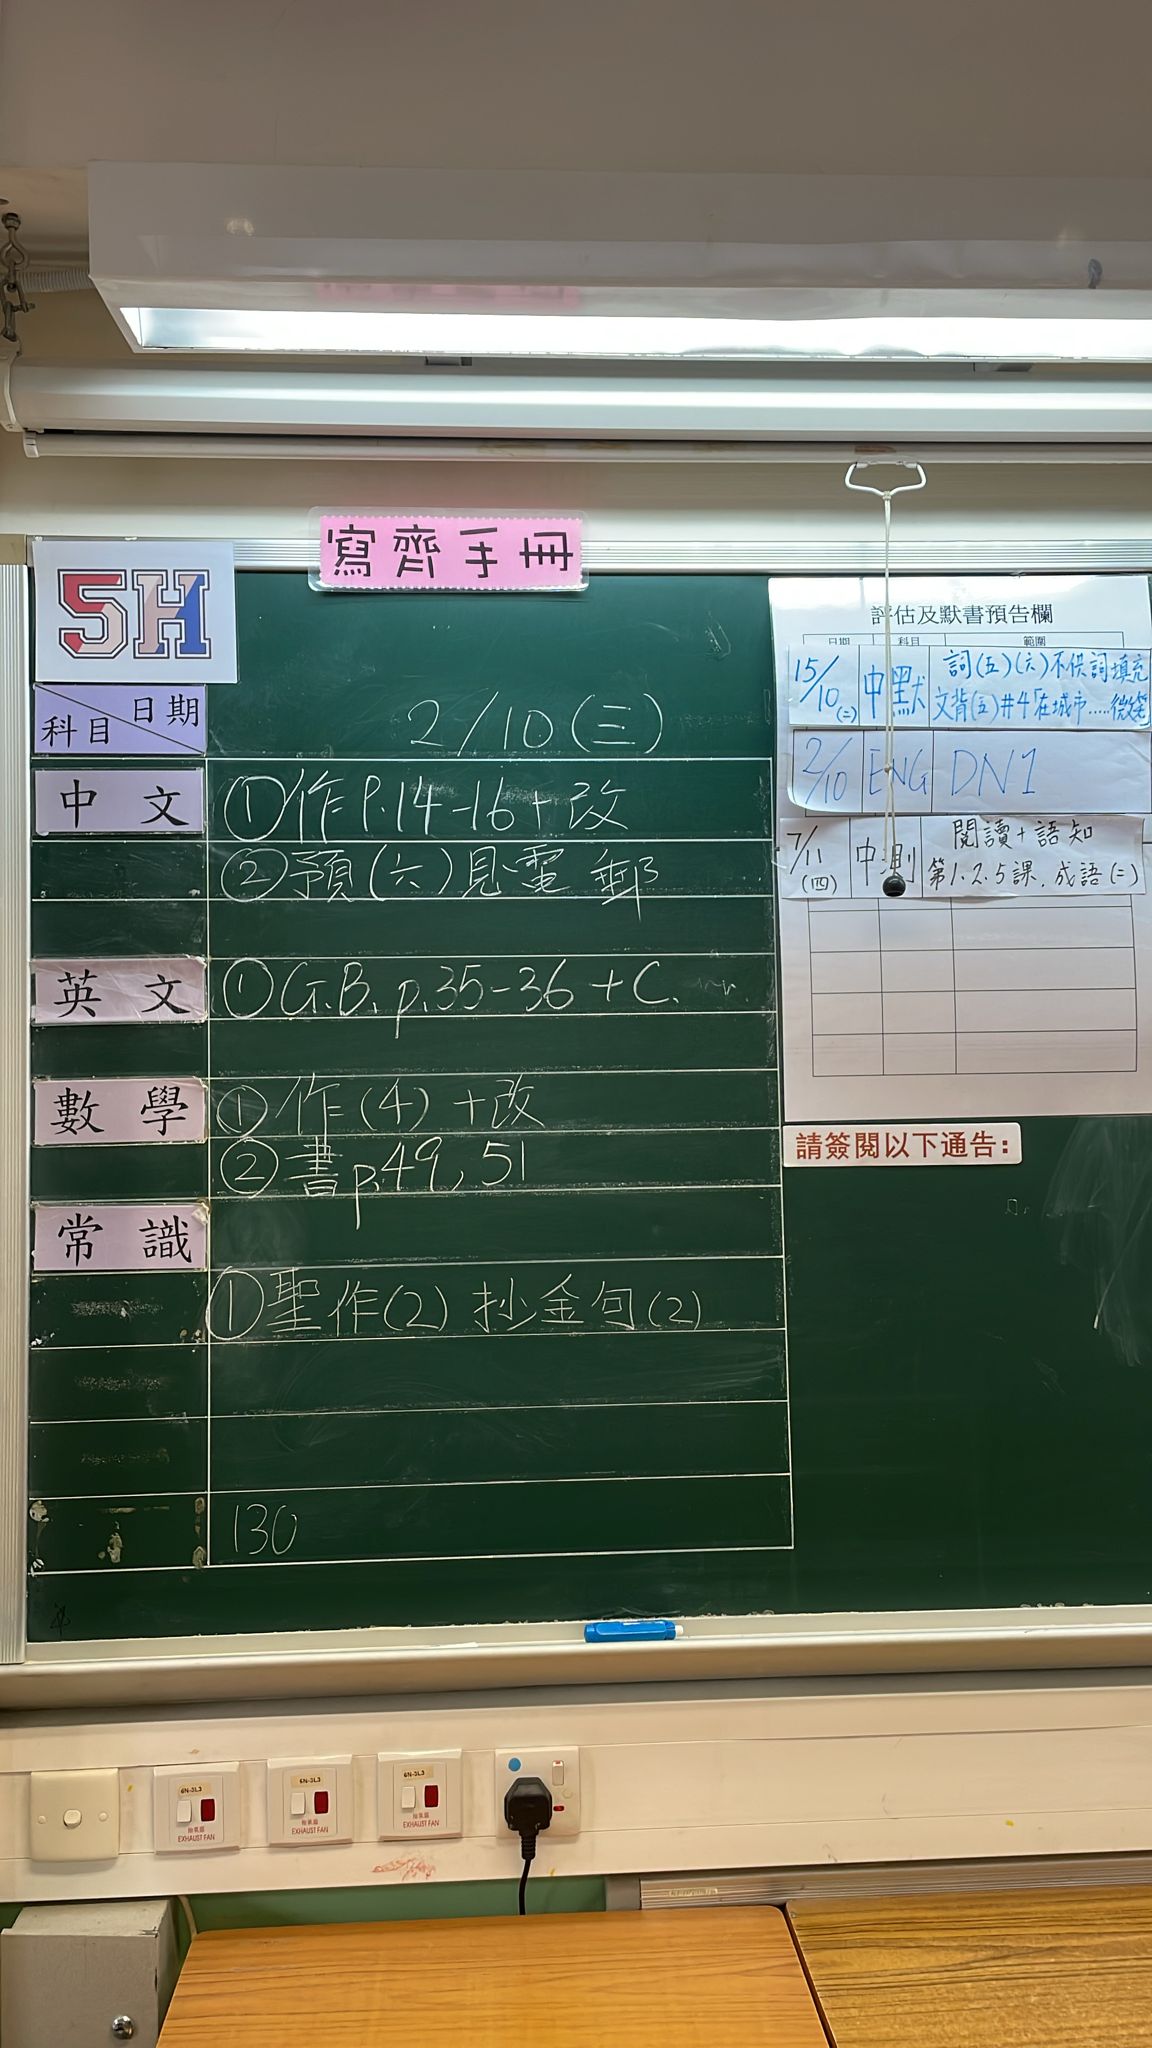 寫齊手冊
5H
日期
科目
2/10(三)
中文
①作P.14-16+改
②預(六)見電郵
英文
①G.B. p.35-36+C.
數學
①作(4)+改
②書p.49,51
常識
①聖作(2) 抄金句(2)
130
評估及默書預告欄
日期 科目 範圍
15/10(二) 中默 詞(五)(六)不供詞填充
文背(五)#4「在城市……微笑
2/10 ENG DN1
7/11(四) 中測 閱讀+語知
第1.2.5課.成語(二)
請簽閱以下通告:
6N-3L3
抽氣扇
EXHAUST FAN
6N-3L3
抽氣扇
EXHAUST FAN
6N-3L3
抽氣扇
EXHAUST FAN